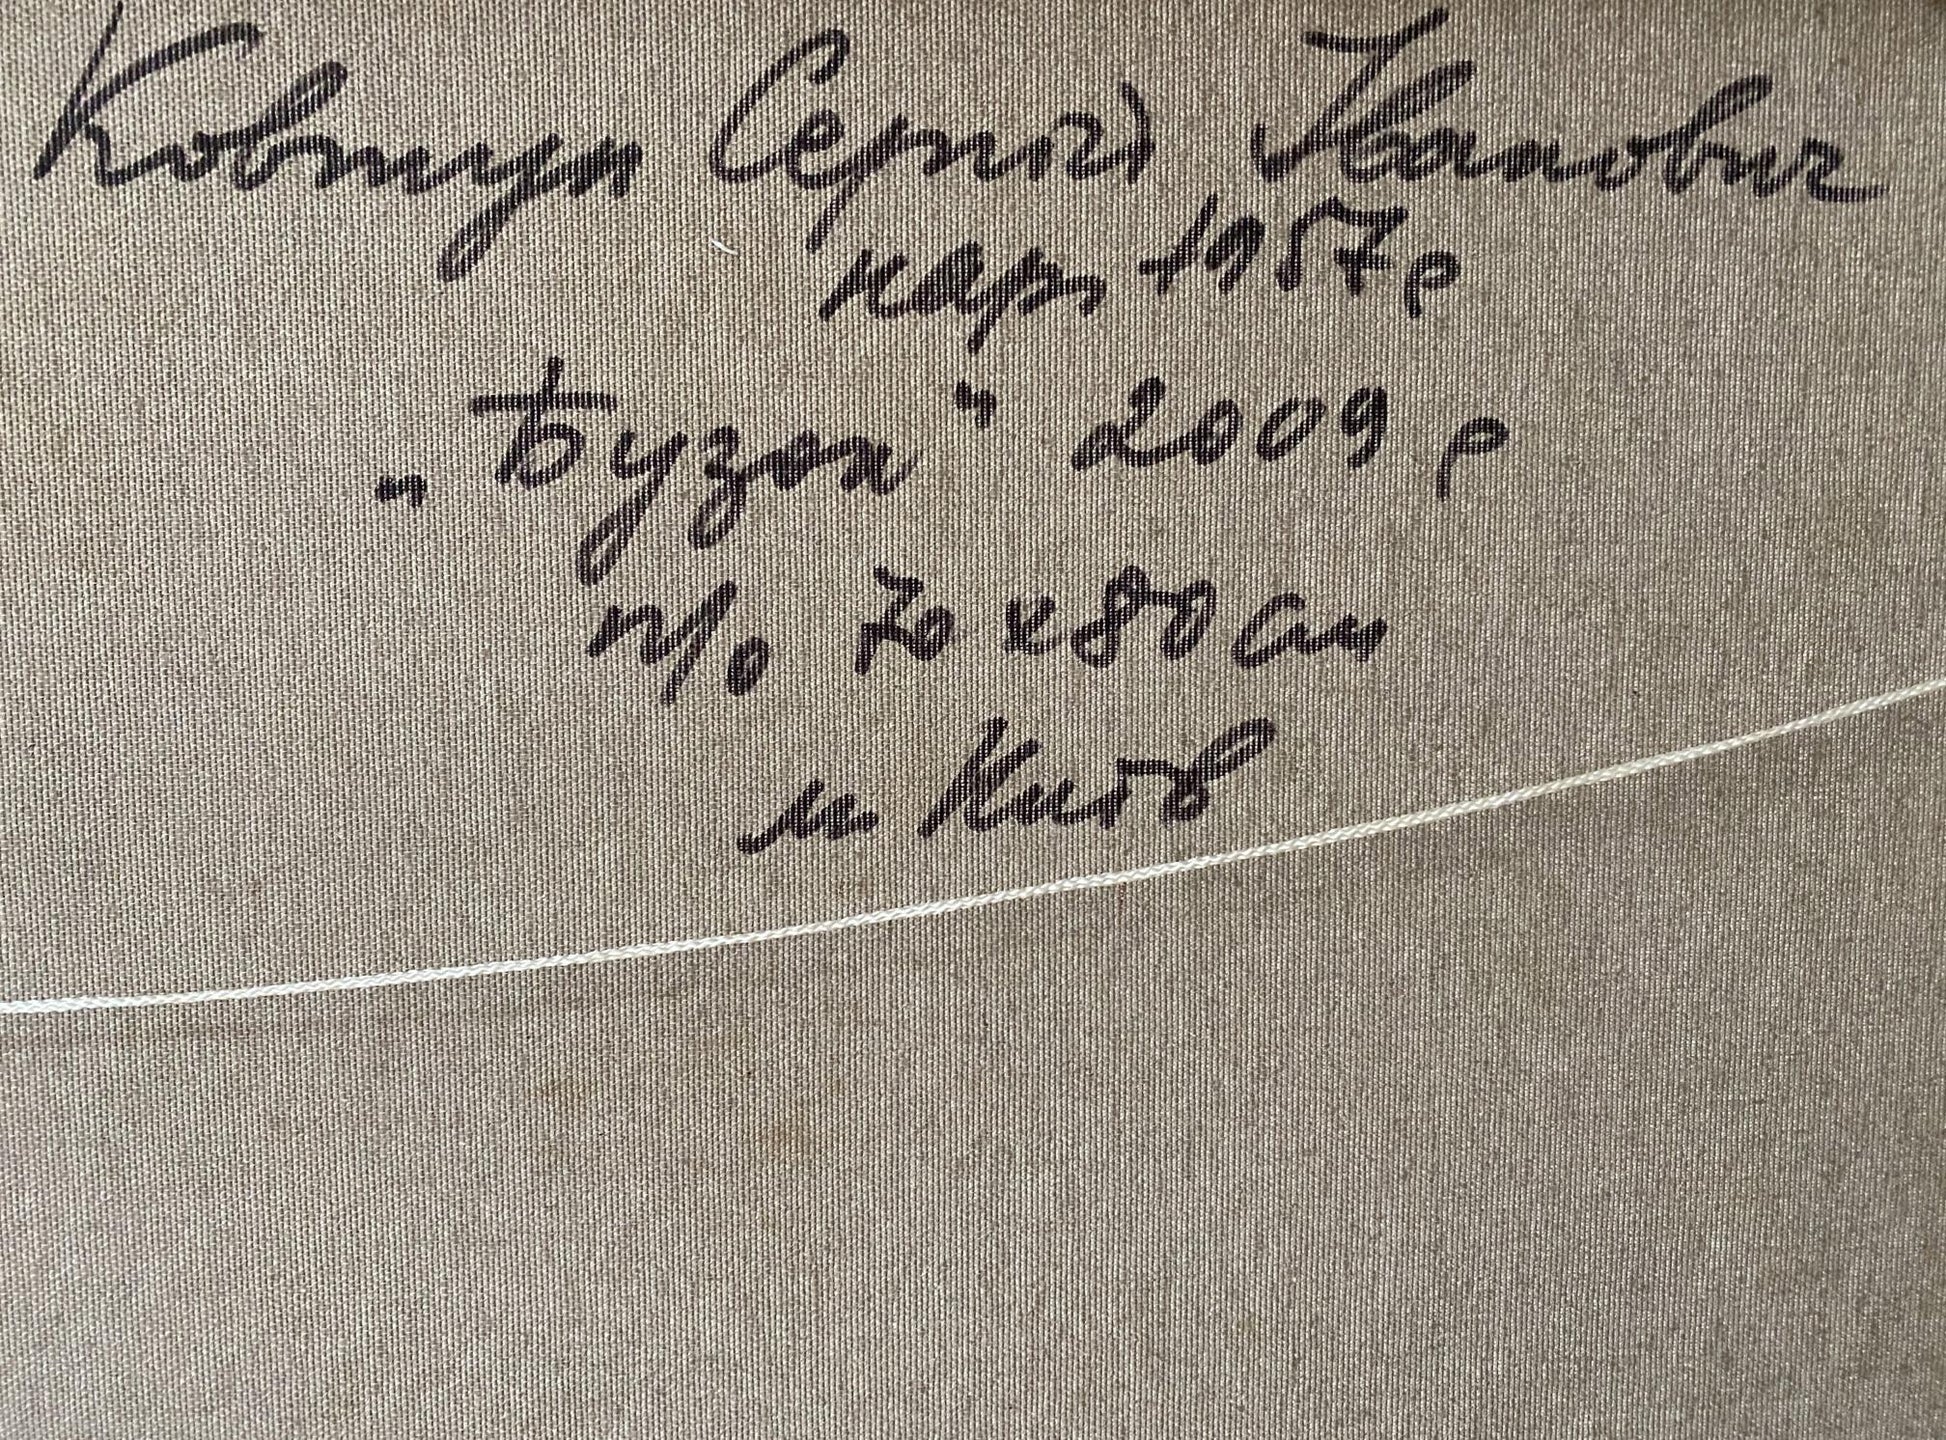 Ковтун Сергій Іванович
нар. 1957 р
„Бузок" 2009 р
п/о 70 х 80 см
м. Київ